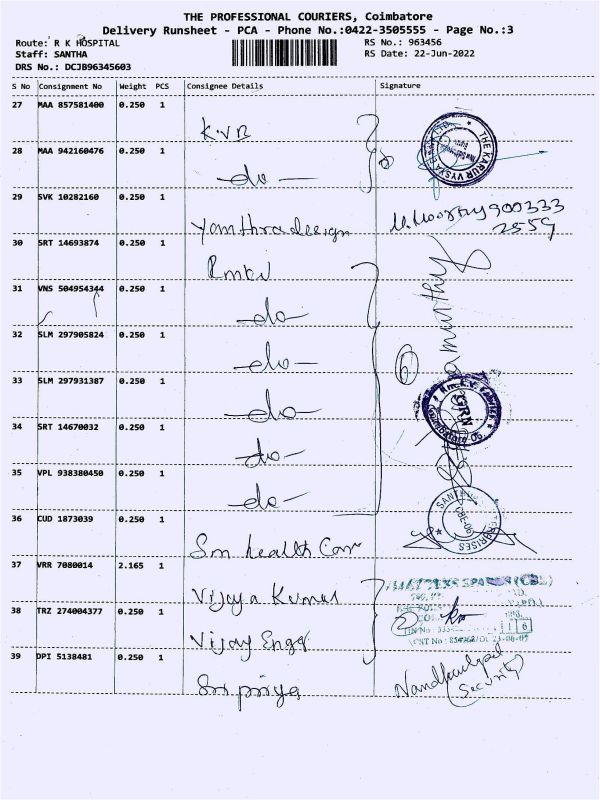 THE PROFESSIONAL COURIERS, Coimbatore
Delivery Runsheet - PCA - Phone No.:0422-3505555 - Page No.:3
Route: R K HOSPITAL
RS No.: 963456
Staff: SANTHA
RS Date: 22-Jun-2022
DRS No.: DCJB96345603
S No Consignment No Weight PCS Consignee Details Signature
27 MAA 857581400 0.250 1
K.V.B
THE KARUR VYSYA
28 MAA 942160476 0.250 1
-do-
29 SVK 10282160 0.250 1
Yanthra design
900333
2559
30 SRT 14693874 0.250 1
31 VNS 504954344 0.250 1
-do-
32 SLM 297905824 0.250 1
-do-
6
33 SLM 297931387 0.250 1
-do-
GRN
34 SRT 14670032 0.250 1
-do-
35 VPL 938380450 0.250 1
-do-
36 CUD 1873039 0.250 1
Sri health Care
37 VRR 7080014 2.165 1
Vijaya Kumar
2
38 TRZ 274004377 0.250 1
Vijay Engg
39 DPI 5138481 0.250 1
Sri priya
Security